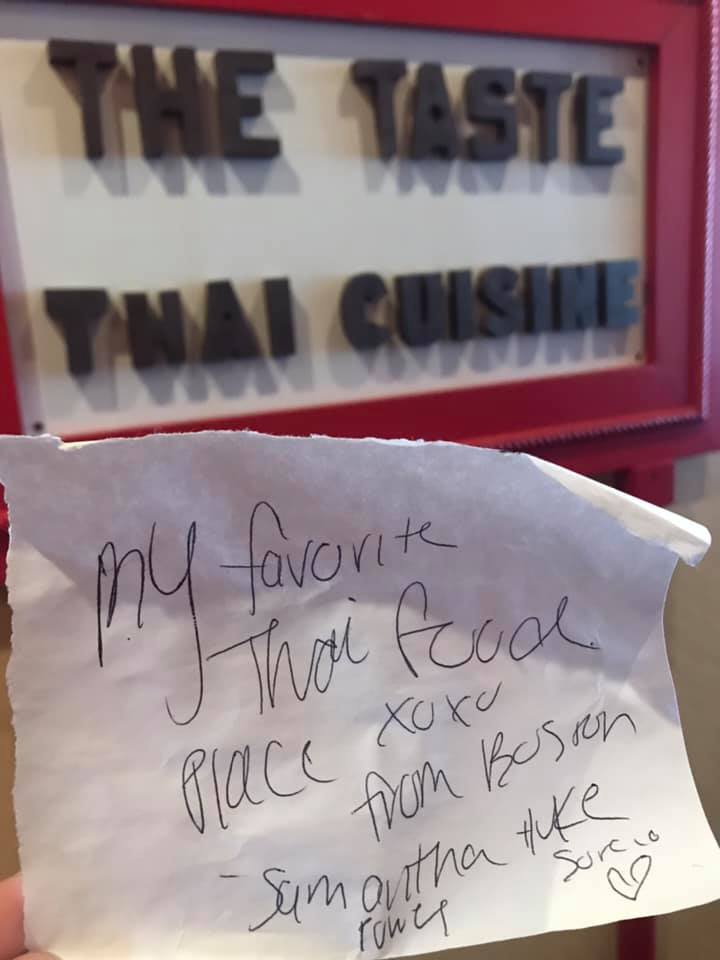 THE TASTE
THAI CUISINE
My favorite
Thai food
Place xoxo
from Boston
- Samantha Huke